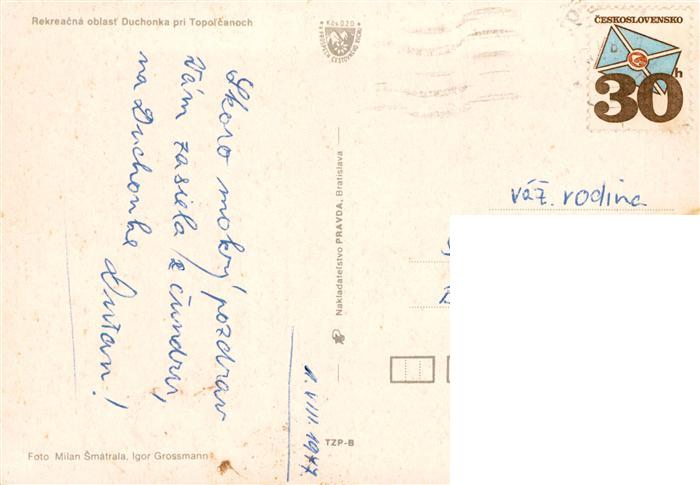 Rekreačná oblasť Duchonka pri Topoľčanoch
Kčs 0,20
V PROSPECH CESTOVNÉHO RUCHU
ČESKOSLOVENSKO
30h
Skoro mokrý pozdrav
Vám zasiela z čundru,
na Duchonke Dušan!
1. VIII. 1977.
Nakladateľstvo PRAVDA, Bratislava
TZP-B
váž. rodina
Foto Milan Šmátrala, Igor Grossmann